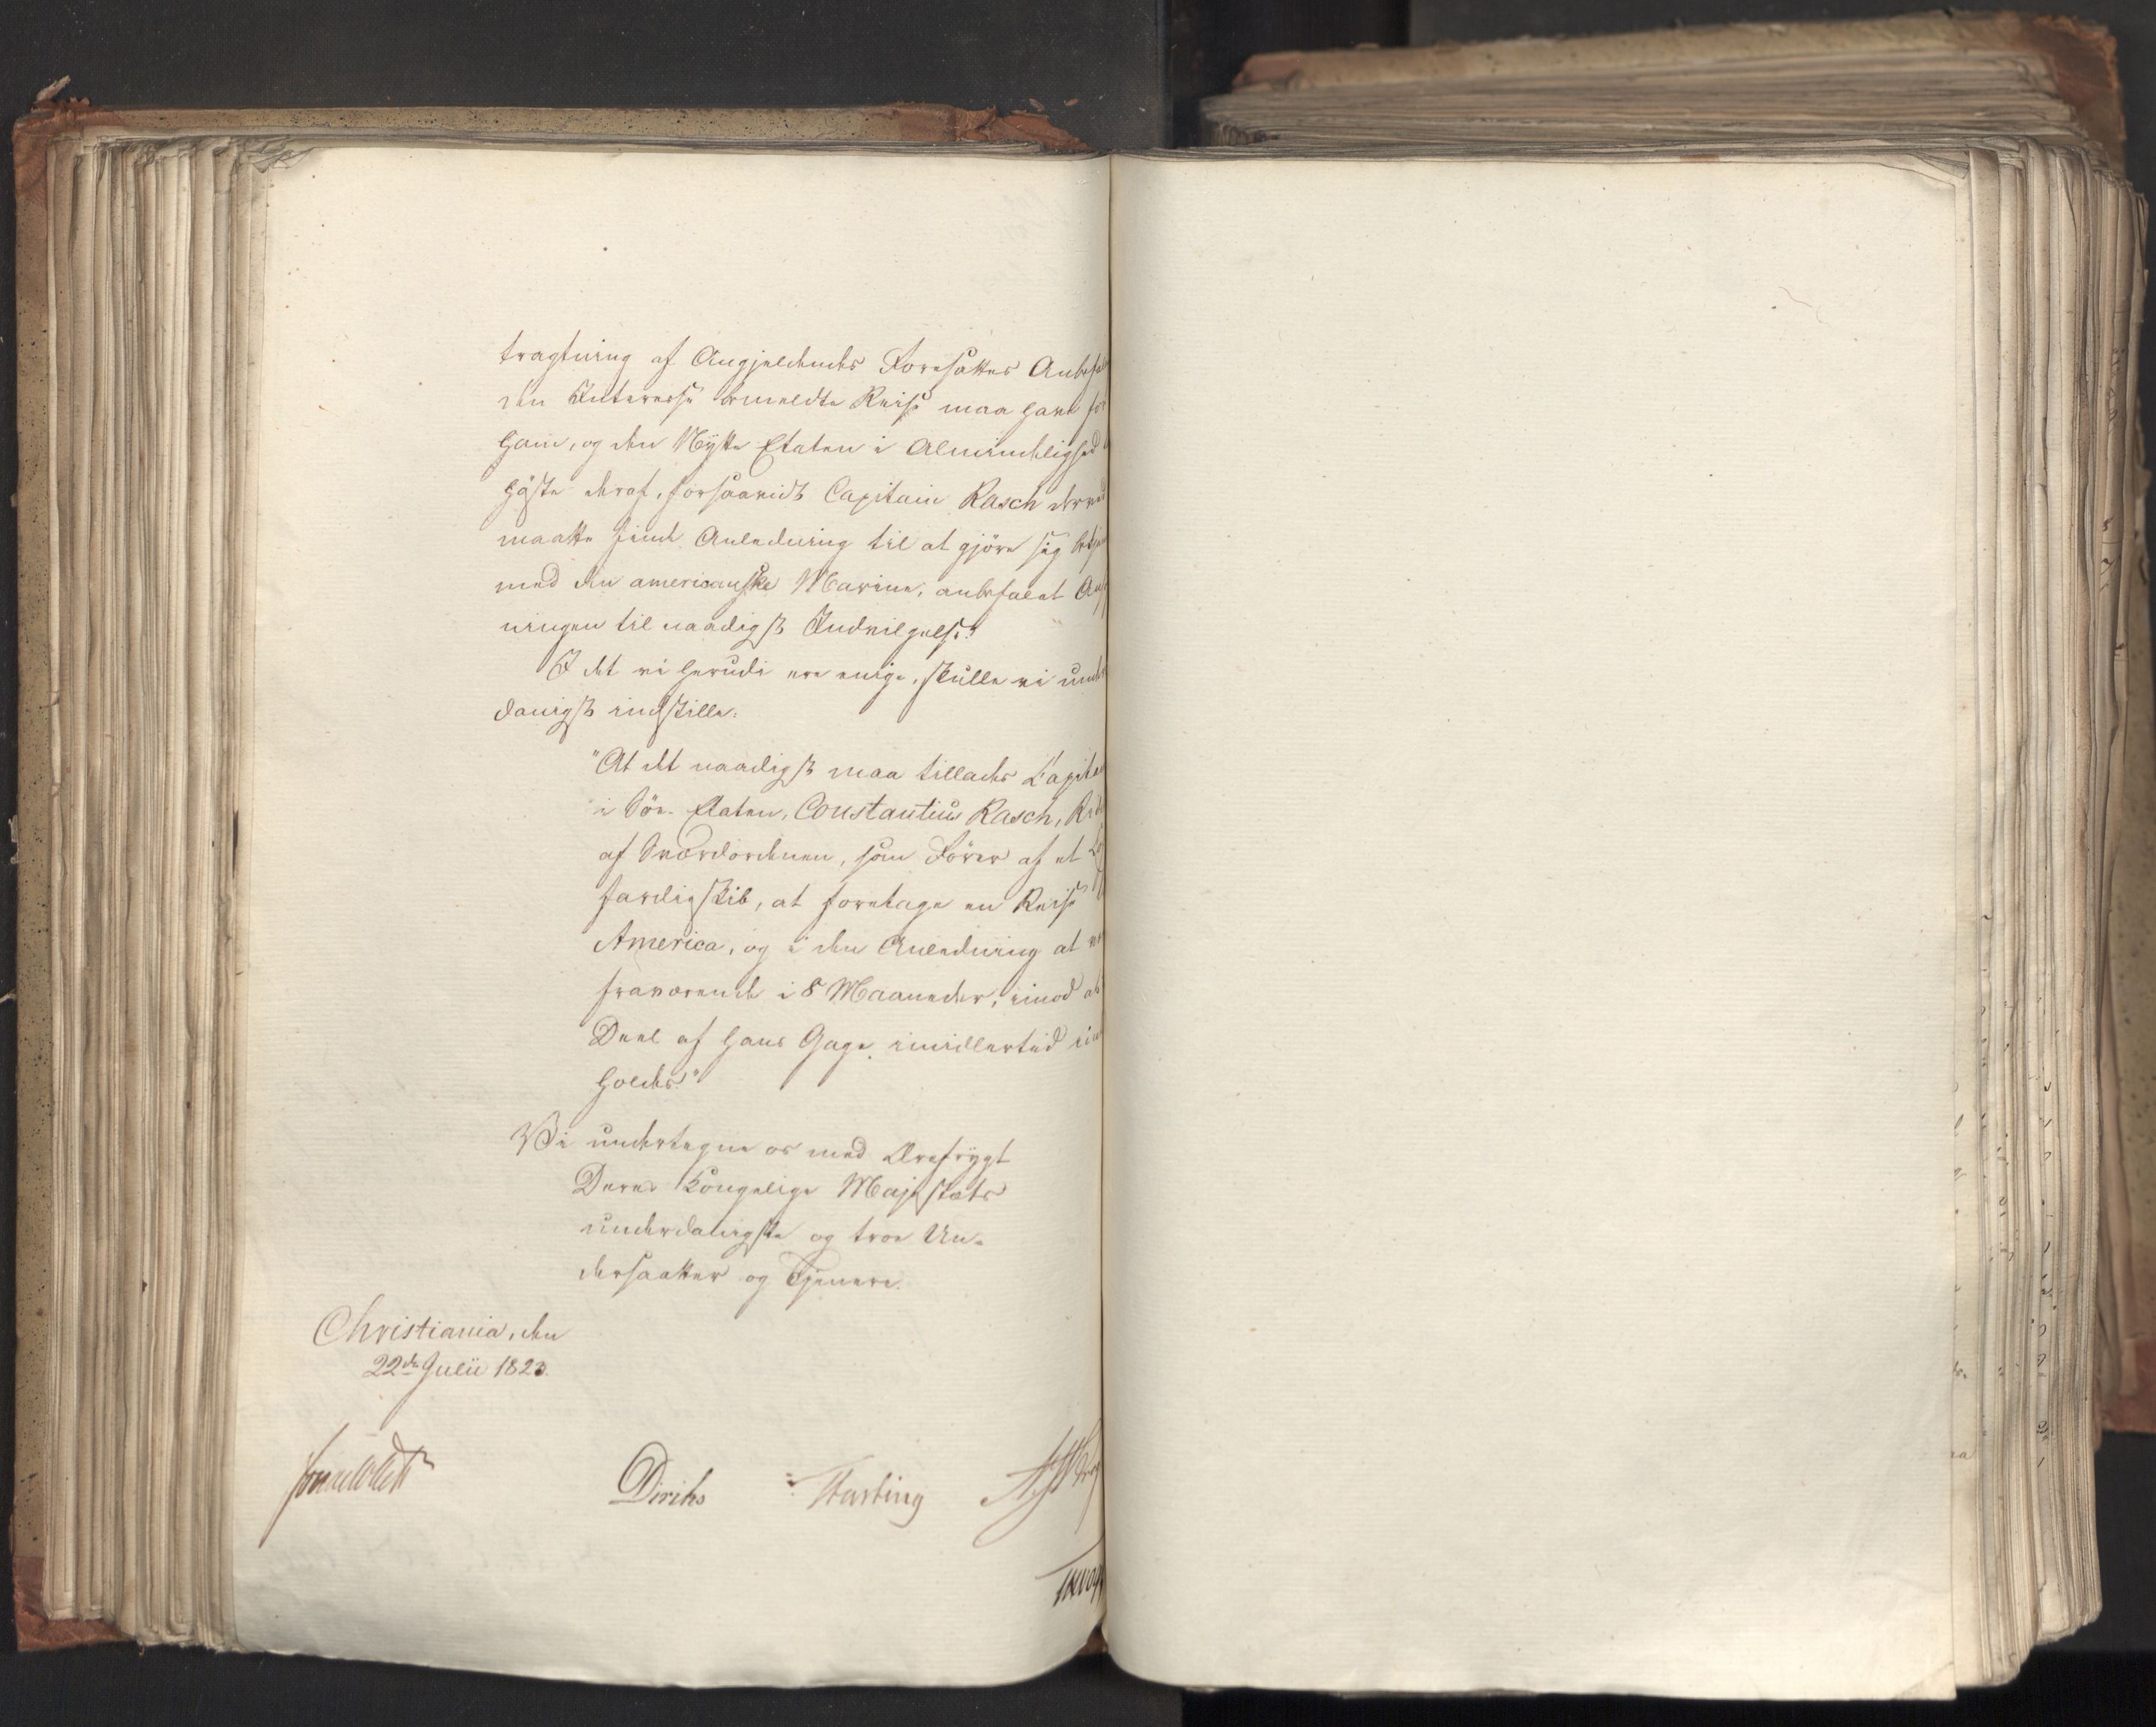 tragtning af Angjeldendes Foresattes Anbefa
den Interesse bemeldte Reise maa have for
ham, og den Nytte Etaten i Almindelighed
høste deraf, forsaavidt Capitain Rasch derved
maatte finde Anledning til at gjøre sig bekjen
med den americanske Marine, anbefalet An
ningen til naadigst Indvilgelse."
I det vi herudi ere enige, skulle vi under
danigst indstille:
"At det naadigst maa tillades Capitai
i Søe-Etaten, Constantius Rasch, Rid
af Sværdordenen, som Fører af et Co
fardieskib, at foretage en Reise
America, og i den Anledning at v
fraværende i 8 Maaneder, imod at
Deel af hans Gage imidlertid in
holdes."
Vi undertegne os med Ærefrygt
Deres Kongelige Majestæts
underdanigste og troe Un-
dersaatter og Tjenere.
Christiania, den
22de Julii 1823.
Sommerhielm
Diriks Fasting